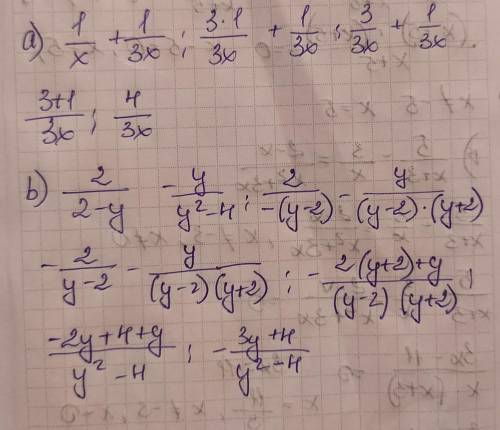 a) 1/x + 1/3x ; 3·1/3x + 1/3x ; 3/3x + 1/3x
3+1/3x ; 4/3x
b) 2/2-y - y/y²-4 ; 2/-(y-2) - y/(y-2)·(y+2)
- 2/y-2 - y/(y-2)(y+2) ; - 2(y+2)+y/(y-2)(y+2)
-2y+4+y/y²-4 ; - 3y+4/y²-4